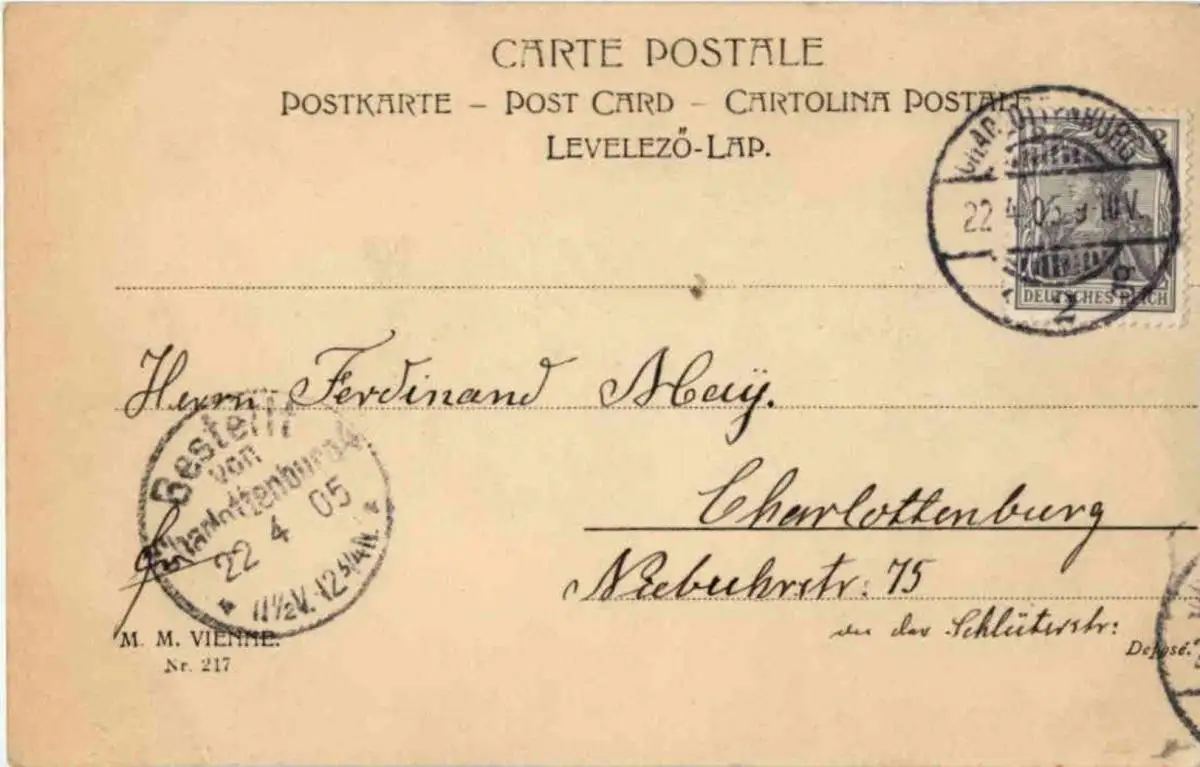 CARTE POSTALE
POSTKARTE – POST CARD – CARTOLINA POSTALE
LEVELEZŐ-LAP.
CHARLOTTENBURG
22 4 05 9-10V.
2
DEUTSCHES REICH
Herrn Ferdinand Maÿ.
Bestellt
von
Charlottenburg 4
22 4 05
11½V.-12¾N.
Charlottenburg
Niebuhrstr: 75
an der Schlüterstr:
M. M. VIENNE.
Nr. 217
Deposé.